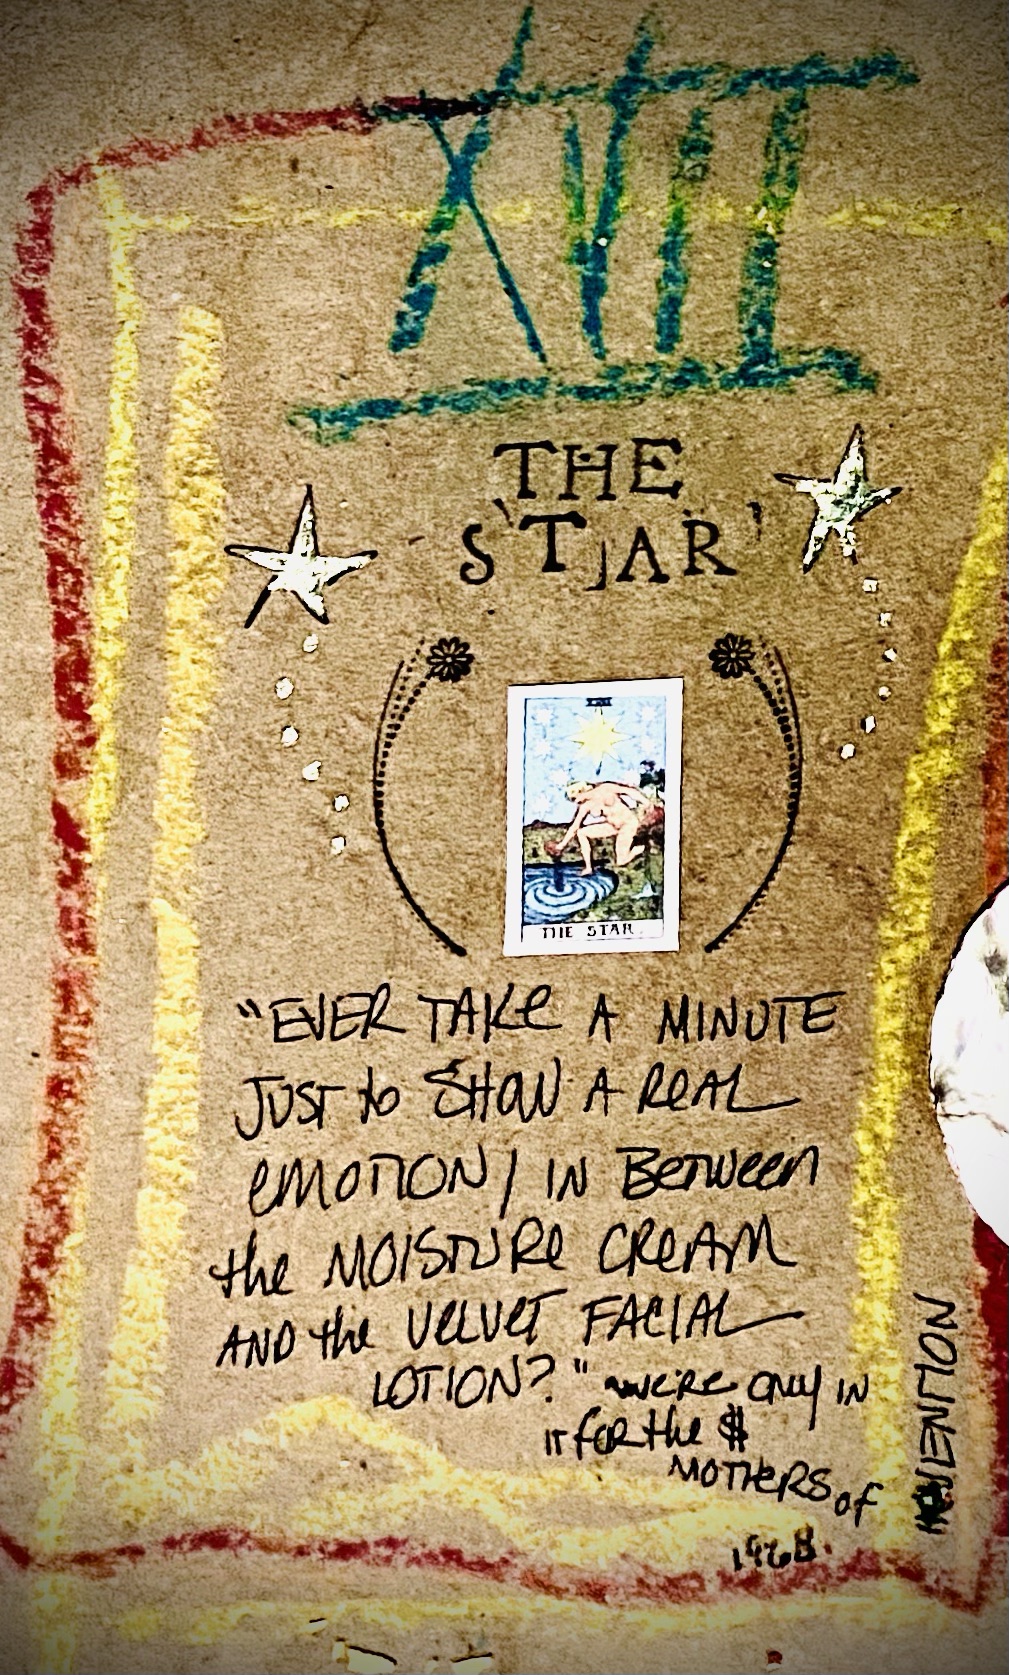 XVII
THE
S'TJAR'
XVII
THE STAR.
"EVER TAKE A MINUTE
JUST to SHOW A REAL
EMOTION / IN BETWEEN
the MOISTURE CREAM
AND the VELVET FACIAL
LOTION?" ~we're only IN
IT FOR the $
MOTHERS of
INVENTION
1968.